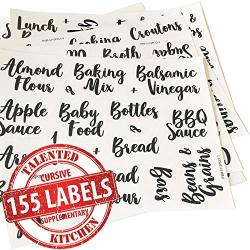 Lunch
Cooking
Croutons
Broth
Almond Flour
Baking Mix
Balsamic Vinegar
+
Apple Sauce
Baby Food
Bottles
&
BBQ Sauce
Bread
Beans & Grains
+
&
TALENTED
CURSIVE
155 LABELS
SUPPLEMENTARY
KITCHEN